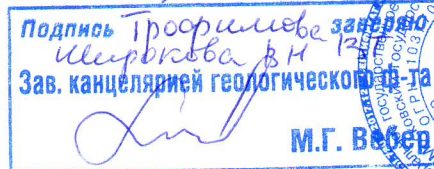 Подпись Трофимова заверяю
Широкова ВН
Зав. канцелярией геологического ф-та
М.Г. Вебер